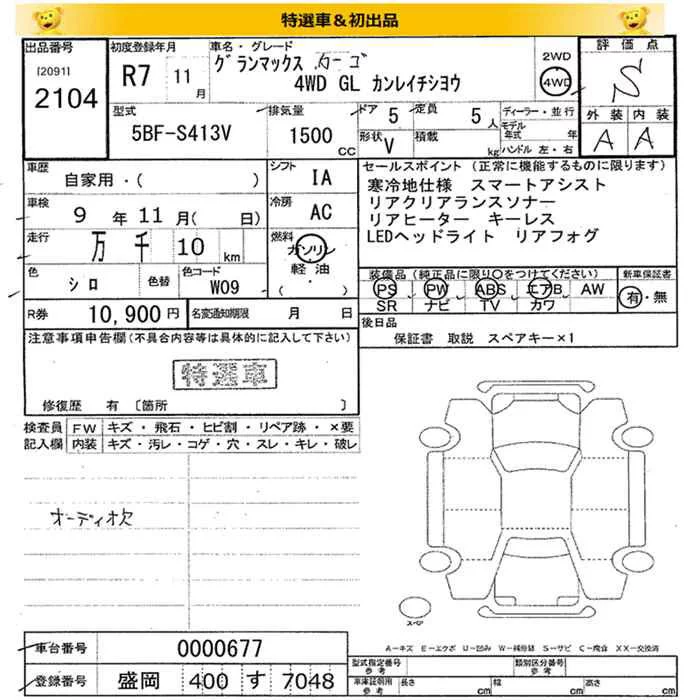 特選車＆初出品
出品番号 初度登録年月 車名・グレード 2WD 評価点
[2091] R7 11月 グランマックス カーゴ 4WD S
2104 4WD GL カンレイチシヨウ
型式 排気量 ドア 定員 ディーラー・並行 外装 内装
5BF-S413V 1500 CC 5 5人 モデル年式 年 A A
形状 V 積載 kg ハンドル 左・右
車歴 シフト セールスポイント (正常に機能するものに限ります)
自家用・( ) IA 寒冷地仕様 スマートアシスト
車検 冷房 リアクリアランスソナー
9年11月( 日) AC リアヒーター キーレス
走行 万 千 10 km 燃料 ガソリン LEDヘッドライト リアフォグ
軽油
・( )
色 シロ 色替 色コード W09
装備品 (純正品に限り○をつけてください) 新車保証書
PS PW ABS エアB AW 有・無
SR ナビ TV カワ
R券 10,900円 名変通知期限 月 日 後日品
保証書 取説 スペアキー×1
注意事項申告欄(不具合内容等は具体的に記入して下さい)
特選車
修復歴 有 〔箇所 〕
検査員 FW キズ・飛石・ヒビ割・リペア跡・×要
記入欄 内装 キズ・汚レ・コゲ・穴・スレ・キレ・破レ
オーディオ欠
スペア
A－キズ E－エクボ U－凹み W－補修跡 S－サビ C－腐食 XX－交換済
車台番号 0000677
型式指定番号 参考 類別区分番号 参考
登録番号 盛岡 400 す 7048
車庫証明用 参考 長さ cm 幅 cm 高さ cm